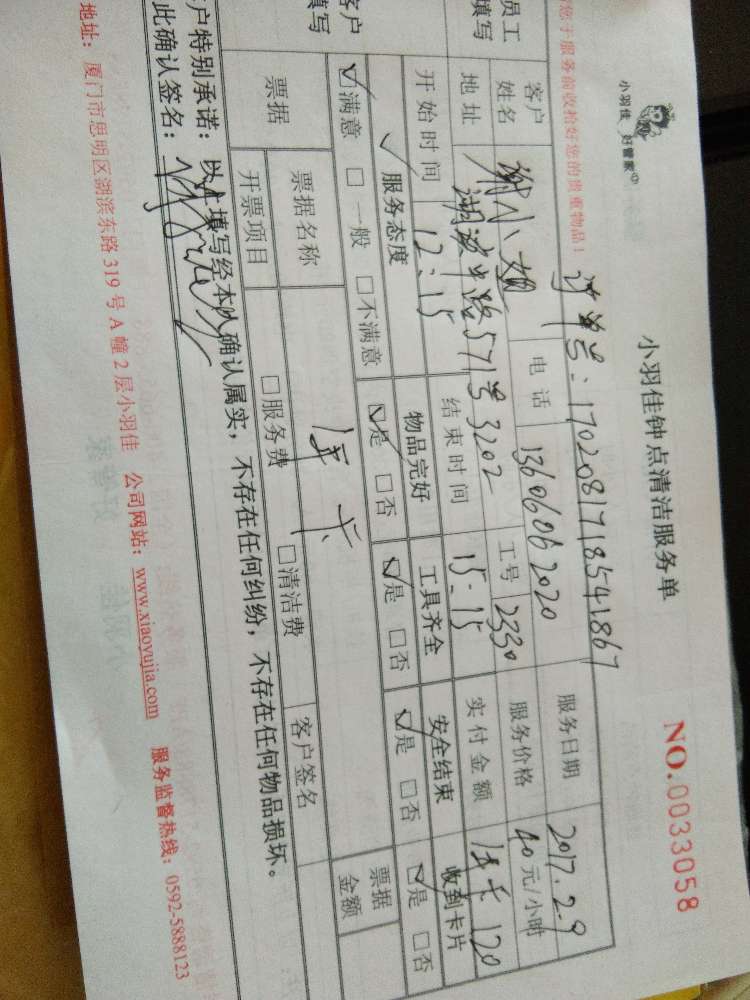 小羽佳 好管家
小羽佳钟点清洁服务单
NO.0033058
您于服务前收拾好您的贵重物品！
订单号：1702081718541867
员工填写
客户姓名 谢小姐 电话 13606062020 工号 2330 服务日期 2017.2.9
服务价格 40元/小时
地址 湖滨中路571号3202
开始时间 12:15 结束时间 15:15 实付金额 120
客户填写
服务态度 物品完好 工具齐全 安全结束 收到卡片
☑满意 □一般 □不满意 ☑是 □否 ☑是 □否 ☑是 □否 ☑是 □否
票据 票据名称 客户签名 票据金额
开票项目 □服务费 □清洁费
户特别承诺：以上填写经本人确认属实，不存在任何纠纷，不存在任何物品损坏。
此确认签名：
地址：厦门市思明区湖滨东路319号A幢2层小羽佳 公司网站：www.xiaoyujia.com 服务监督热线：0592-5888123